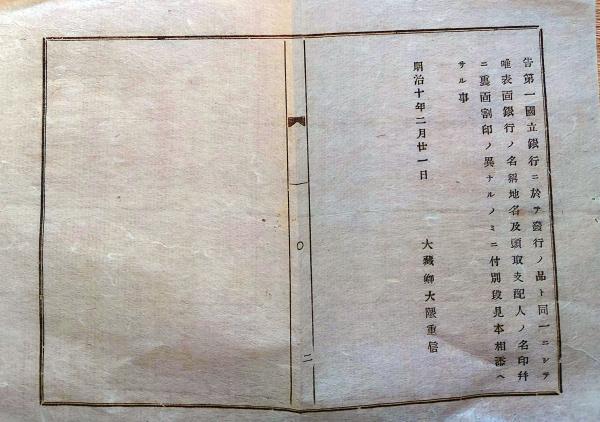 昔第一國立銀行ニ於テ發行ノ品ト同一ニシテ
唯表面銀行ノ名稱地名及頭取支配人ノ名印幷
ニ裏面割印ノ異ナルノミニ付別段見本相添ヘ
サル事
明治十年二月廿一日
大藏卿大隈重信
二